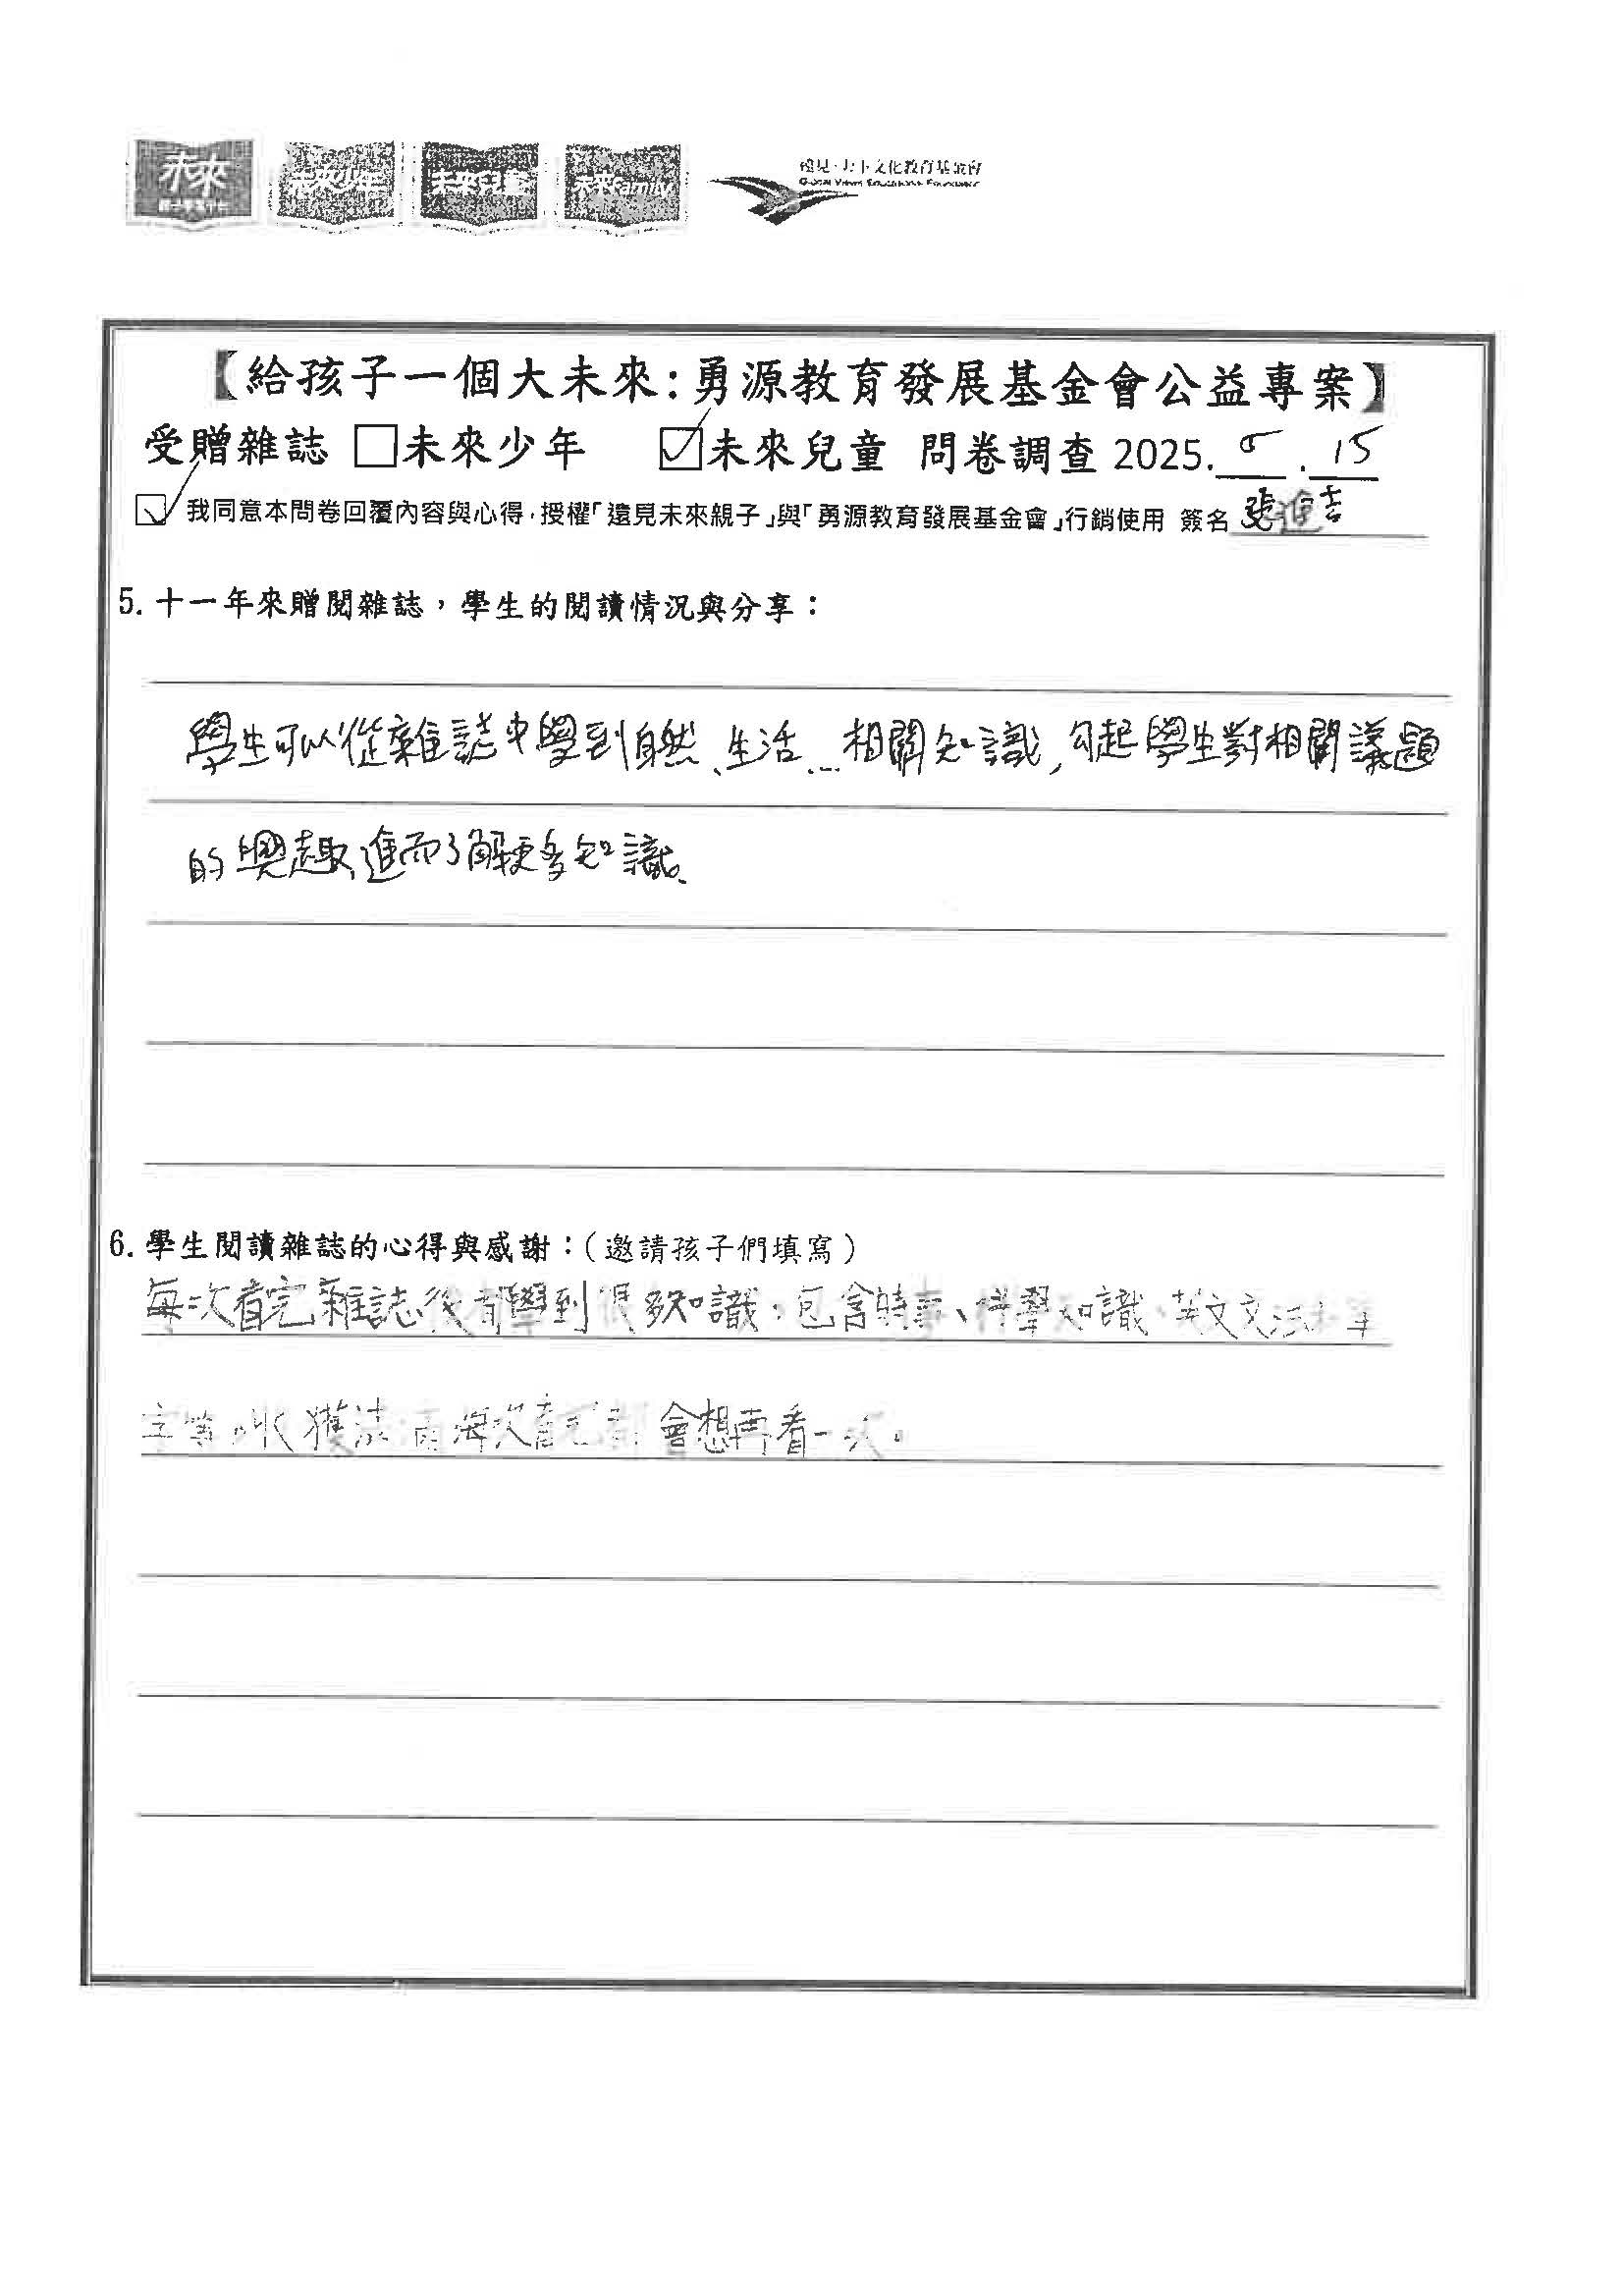 未來
親子學習平台
未來少年
未來兒童
未來Family
遠見‧天下文化教育基金會
Global Views Educational Foundation
【給孩子一個大未來:勇源教育發展基金會公益專案】
受贈雜誌 □未來少年 ☑未來兒童 問卷調查 2025.5.15
☑ 我同意本問卷回覆內容與心得,授權「遠見未來親子」與「勇源教育發展基金會」行銷使用 簽名 張進吉
5. 十一年來贈閱雜誌,學生的閱讀情況與分享:
學生可以從雜誌中學到自然、生活...相關知識,勾起學生對相關議題
的興趣,進而了解更多知識。
6. 學生閱讀雜誌的心得與感謝:(邀請孩子們填寫)
每次看完雜誌後都學到很多知識,包含時事、科學知識、英文文法和單
字等,收獲滿滿,每次看完都會想再看一次。